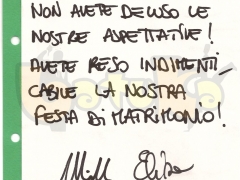 NON AVETE DELUSO LE
NOSTRE ASPETTATIVE!
AVETE RESO INDIMENTI-
CABILE LA NOSTRA
FESTA DI MATRIMONIO!